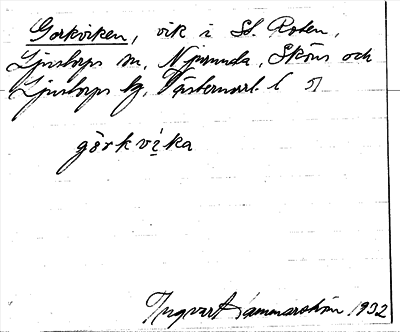 Gorkviken, vik i St. Roten,
Ljustorps sn, Njurunda, Sköns och
Ljustorps tg, Västernorrl. l
görkvika
Ingvart Hammarström 1932